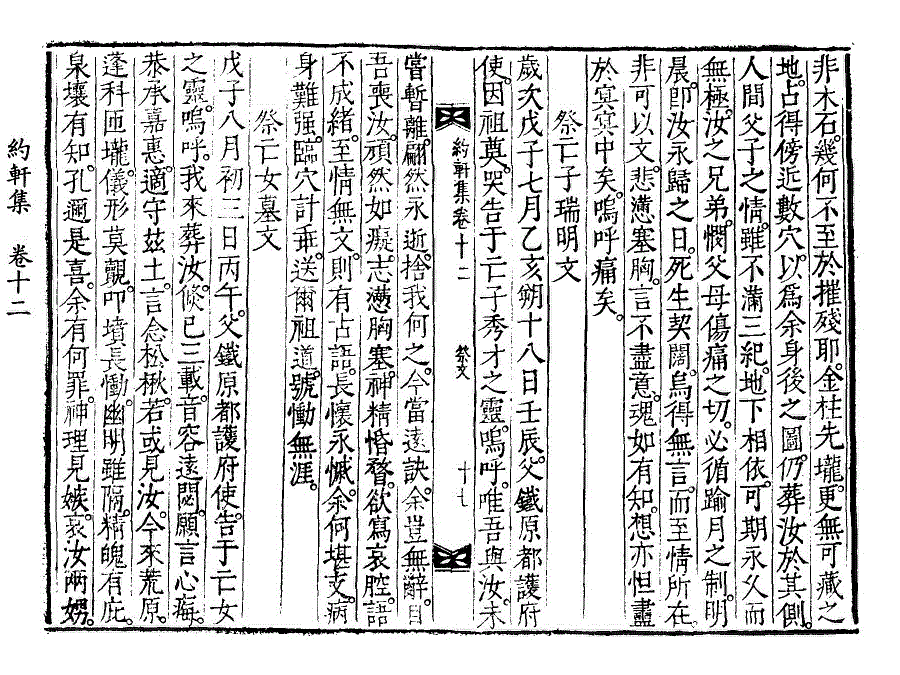 非木石。幾何不至於摧殘耶。金柱先壠。更無可藏之
地。占得傍近數穴。以爲余身後之圖。仍葬汝於其側。
人間父子之情。雖不滿三紀。地下相依。可期永久。而
無極。汝之兄弟。憫父母傷痛之切。必循踰月之制。明
晨。卽汝永歸之日。死生契闊。烏得無言。而至情所在。
非可以文。悲懣塞胸。言不盡意。魂如有知。想亦怛盡
於冥冥中矣。嗚呼痛矣。
祭亡子瑞明文
歲次戊子七月乙亥朔十八日壬辰。父鐵原都護府
使。因祖奠。哭告于亡子秀才之靈。嗚呼。唯吾與汝。未
約軒集卷十二 祭文 十七
嘗暫離。翩然永逝。捨我何之。今當遠訣。余豈無辭。目
吾喪汝。頑然如癡。志懣胸塞。神精惛瞀。欲寫哀腔。語
不成緖。至情無文。則有古語。長懷永慽。余何堪支。病
身難强。臨穴計乖。送爾祖道。號慟無涯。
祭亡女墓文
戊子八月初三日丙午。父鐵原都護府使。告于亡女
之靈。嗚呼。我來葬汝。倐已三載。音容遠閟。願言心痗。
恭承嘉惠。適守玆土。言念松楸。若或見汝。今來荒原。
蓬科匝壠。儀形莫覿。叩墳長慟。幽明雖隔。精魄有庇。
泉壤有知。孔邇是喜。余有何罪。神理見嫉。哀汝兩娚。
約軒集 卷十二